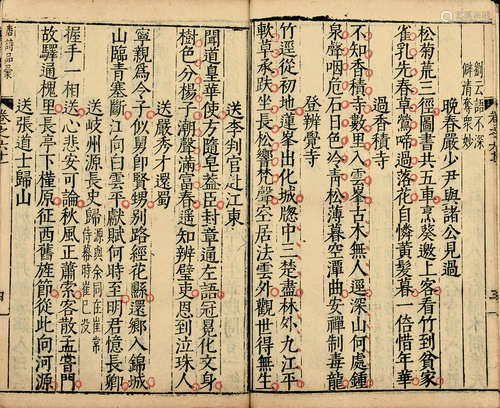 劉云語不深
僻清奪衆妙
晚春嚴少尹與諸公見過
松菊荒三徑圖書共五車烹葵邀上客看竹到貧家
雀乳先春草鶯啼過落花自憐黃髮暮一倍惜年華
過香積寺
不知香積寺數里入雲峯古木無人逕深山何處鍾
泉聲咽危石日色冷青松薄暮空潭曲安禪制毒龍
登辨覺寺
竹逕從初地蓮峯出化城牕中三楚盡林外九江平
軟草承趺坐長松響梵聲空居法雲外觀世得無生
送李判官赴江東
聞道皇華使方隨皁葢臣封章通左語冠冕化文身
樹色分楊子潮聲滿富春遥知辨璧吏恩到泣珠人
送嚴秀才還蜀
寧親爲令子似舅即賢甥別路經花縣還鄉入錦城
山臨青塞斷江向白雲平獻賦何時至明君憶長卿
送岐州源長史歸 源與余同在崔常
侍幕時崔已没
握手一相送心悲安可論秋風正蕭索客散孟嘗門
故驛通槐里長亭下槿原征西舊旌節從此向河源
送張道士歸山
唐詩品彙
卷之六十一
四